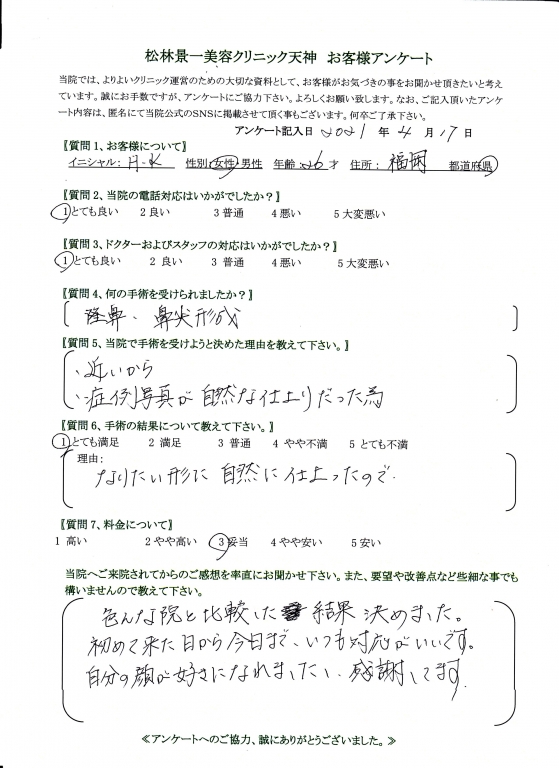 松林景一美容クリニック天神 お客様アンケート
当院では、よりよいクリニック運営のための大切な資料として、お客様がお気づきの事をお聞かせ頂きたいと考え
ています。誠にお手数ですが、アンケートにご協力下さい。よろしくお願い致します。なお、ご記入頂いたアンケ
ート内容は、匿名にて当院公式のSNSに掲載させて頂く事もございます。何卒ご了承下さい。
アンケート記入日 2021 年 4 月 17 日
【質問1、お客様について】
イニシャル: H-K 性別 女性・男性 年齢 26 才 住所: 福岡 都道府県
【質問2、当院の電話対応はいかがでしたか?】
1とても良い 2 良い 3 普通 4 悪い 5 大変悪い
【質問3、ドクターおよびスタッフの対応はいかがでしたか?】
1とても良い 2 良い 3 普通 4 悪い 5 大変悪い
【質問4、何の手術を受けられましたか?】
隆鼻、鼻尖形成
【質問5、当院で手術を受けようと決めた理由を教えて下さい。】
・近いから
・症例写真が自然な仕上りだった為
【質問6、手術の結果について教えて下さい。】
1とても満足 2 満足 3 普通 4 やや不満 5 とても不満
理由:
なりたい形に自然に仕上ったので
【質問7、料金について】
1 高い 2 やや高い 3 妥当 4 やや安い 5 安い
当院へご来院されてからのご感想を率直にお聞かせ下さい。また、要望や改善点など些細な事でも
構いませんので教えて下さい。
色んな院と比較した結果決めました。
初めて来た日から今日まで、いつも対応がいいです。
自分の顔が好きになれました、感謝してます
≪アンケートへのご協力、誠にありがとうございました。≫